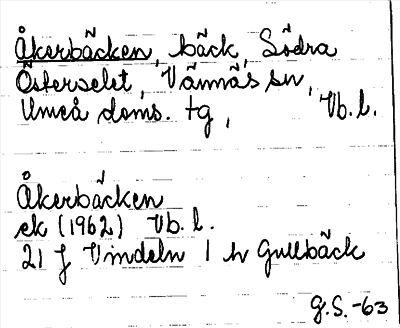 Åkerbäcken, bäck, Södra
Österselet, Vännäs sn,
Umeå doms. tg, Vb. l.
Åkerbäcken
ek (1962) Vb. l.
21 J Vindeln 1 h Gullbäck
G.S.-63